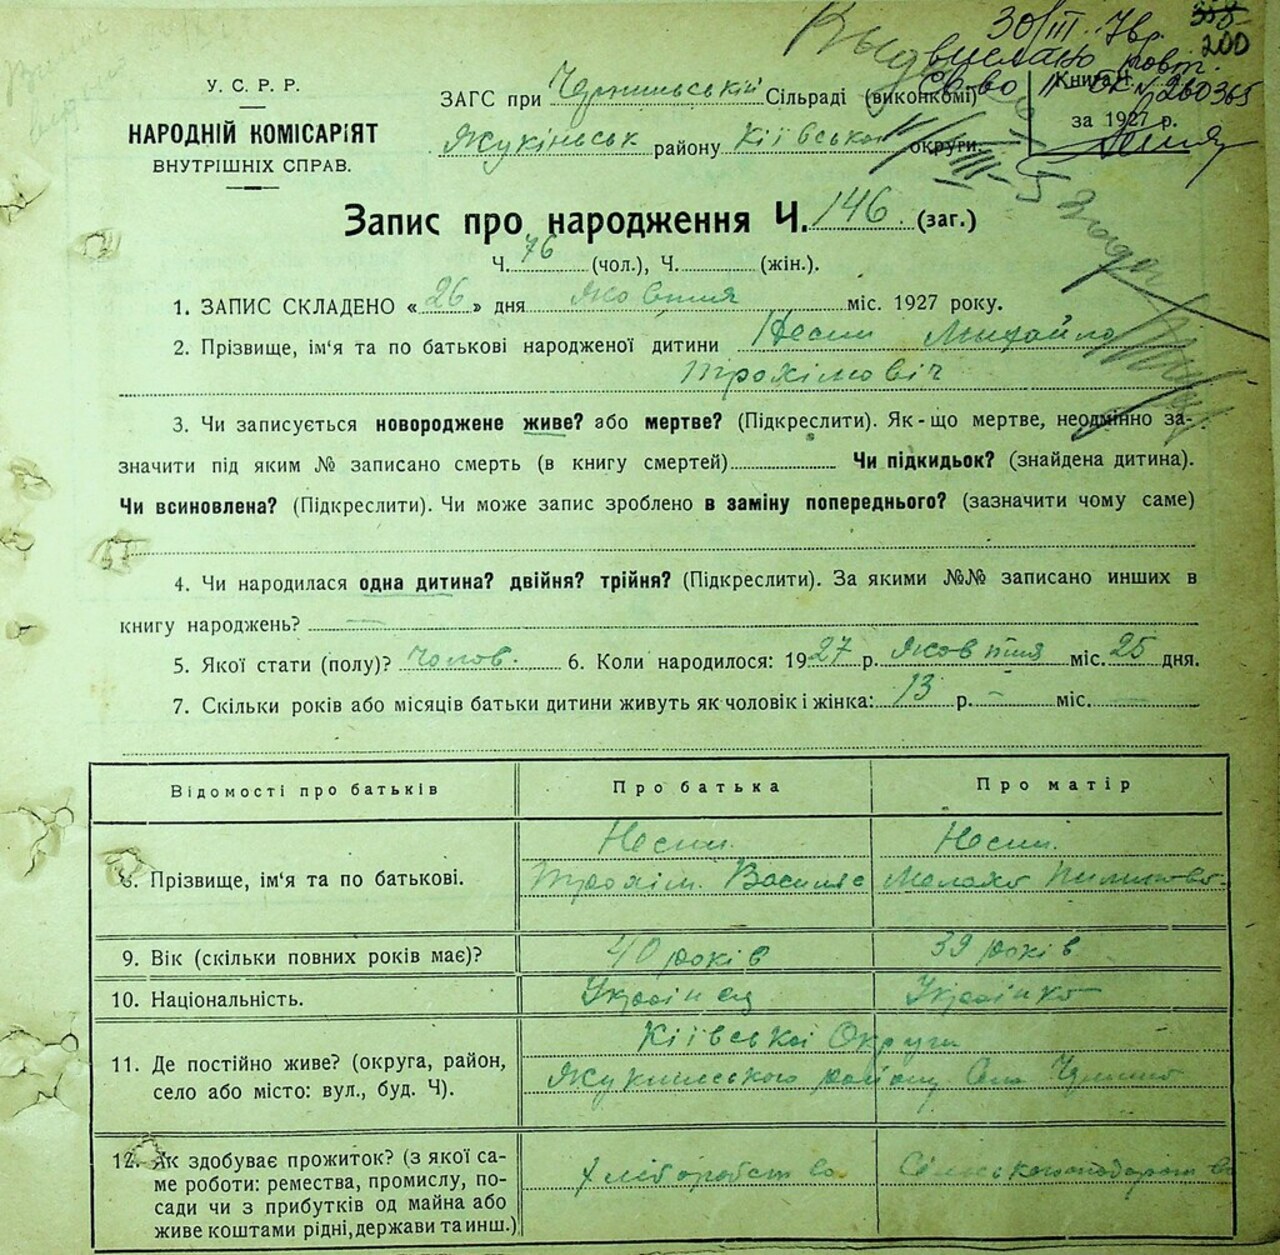 30/III 78р.
200
вислано повт.
Св-во II БК № 260365
У. С. Р. Р.
НАРОДНІЙ КОМІСАРІЯТ
ВНУТРІШНІХ СПРАВ.
ЗАГС при Сільраді (виконкомі)
Книга Ч.
Жукінськ району Кіївської округи.
за 1927 р.
Запис про народження Ч. 146. (заг.)
Ч. 76 (чол.), Ч. (жін.).
1. ЗАПИС СКЛАДЕНО « 26 » дня Жовтня міс. 1927 року.
2. Прізвище, ім'я та по батькові народженої дитини Несин Михайло
Трохімовіч
3. Чи записується новороджене живе? або мертве? (Підкреслити). Як-що мертве, неодмінно за-
значити під яким № записано смерть (в книгу смертей) Чи підкидьок? (знайдена дитина).
Чи всиновлена? (Підкреслити). Чи може запис зроблено в заміну попереднього? (зазначити чому саме)
4. Чи народилася одна дитина? двійня? трійня? (Підкреслити). За якими №№ записано инших в
книгу народжень? —
5. Якої стати (полу)? Чолов. 6. Коли народилося: 1927 р. Жовтня міс. 25 дня.
7. Скільки років або місяців батьки дитини живуть як чоловік і жінка: 13 р. — міс. —
Відомості про батьків Про батька Про матір
Несин. Несин.
8. Прізвище, ім'я та по батькові. Трохім. Василів
9. Вік (скільки повних років має)? 40 років 39 років
10. Національність. Українец Українка
Кіївської Округи
11. Де постійно живе? (округа, район,
Жукинського району Село
село або місто: вул., буд. Ч).
12. Як здобуває прожиток? (з якої са-
ме роботи: ремества, промислу, по- Хліборобство Сільськогосподарство
сади чи з прибутків од майна або
живе коштами рідні, держави та инш.)